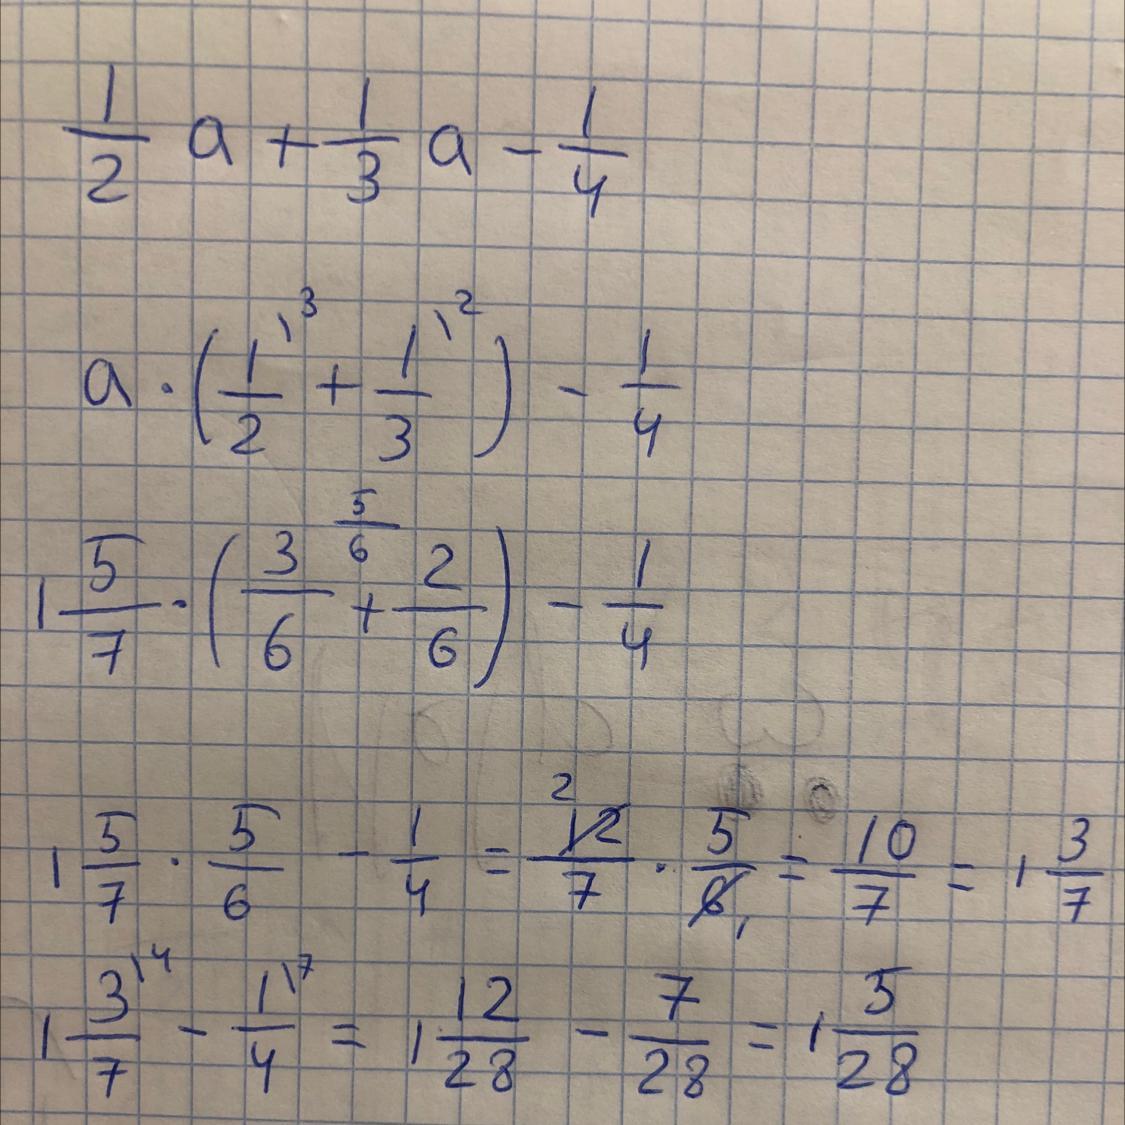 1/2 a + 1/3 a - 1/4
a · (1/2 \3 + 1/3 \2) - 1/4
5/6
1 5/7 · (3/6 + 2/6) - 1/4
2
1 5/7 · 5/6 - 1/4 = 12/7 · 5/6 1 = 10/7 = 1 3/7
1 3/7 \4 - 1/4 \7 = 1 12/28 - 7/28 = 1 5/28